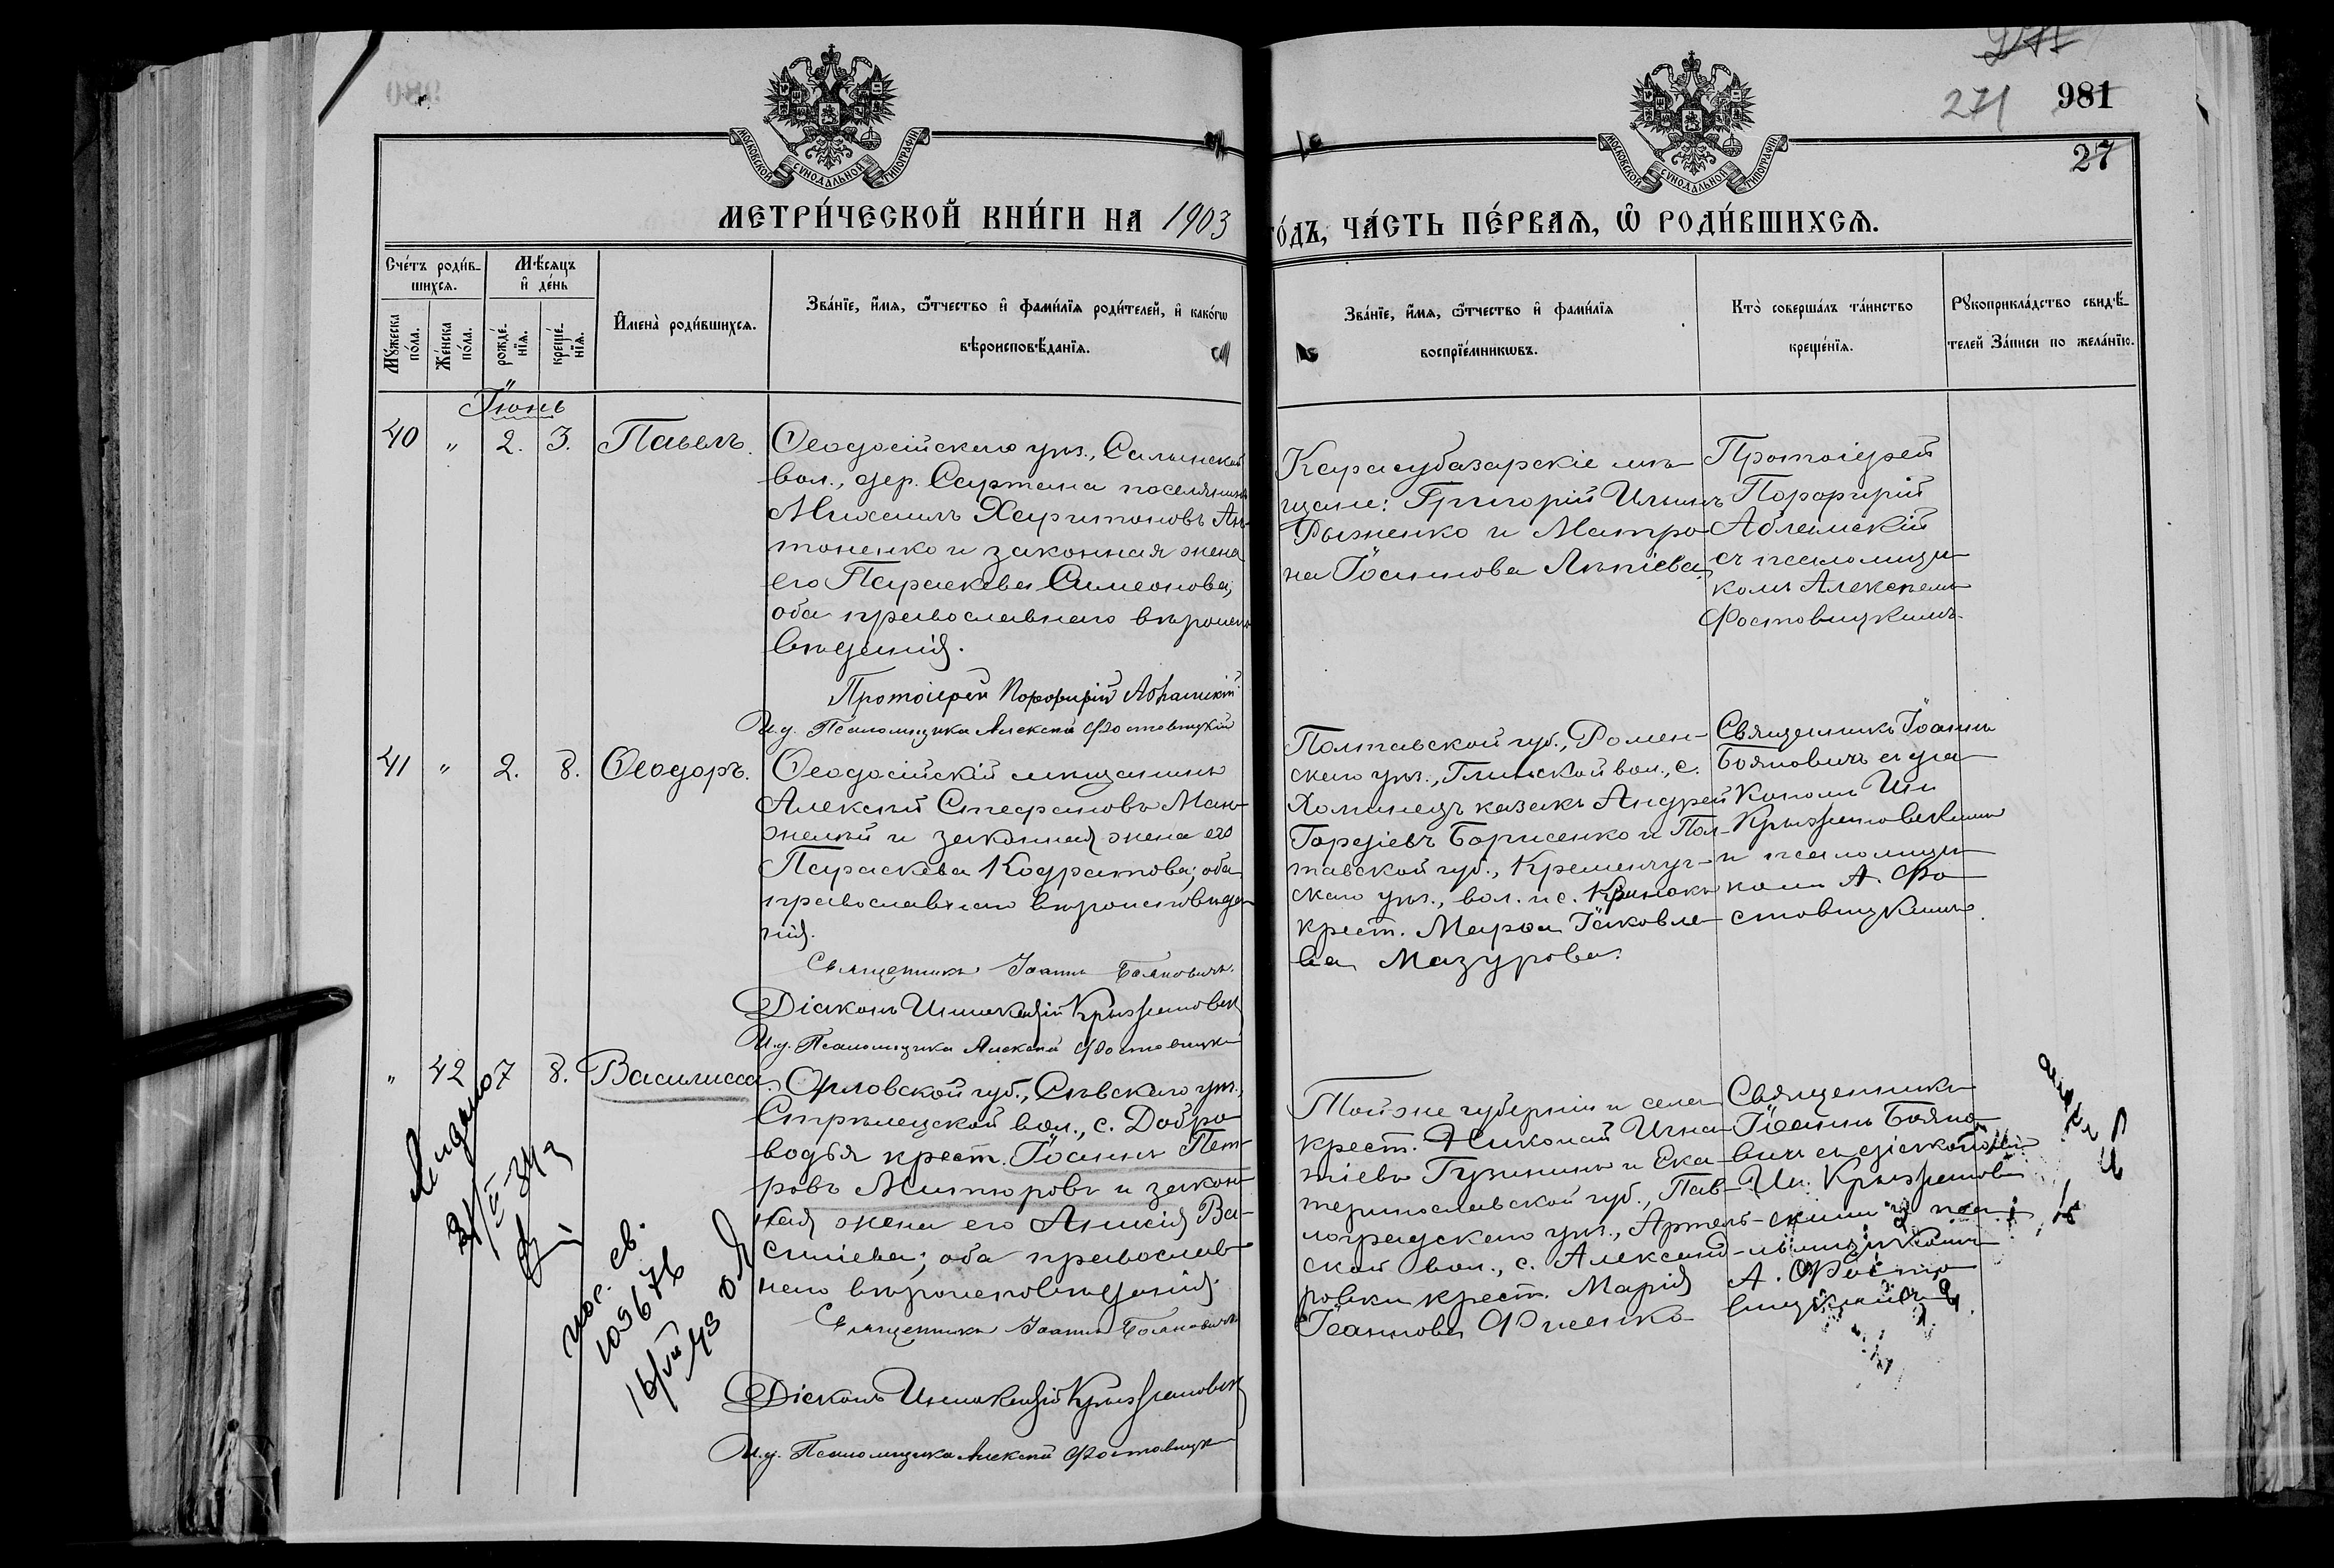 271
981
27
МОСКОВСКОЙ СѴНОДАЛЬНОЙ ТИПОГРАФІИ
МОСКОВСКОЙ СѴНОДАЛЬНОЙ ТИПОГРАФІИ
МЕТРИ́ЧЕСКОЙ КНИ́ГИ НА 1903 ГО́ДЪ, ЧА́СТЬ ПЕ́РВАѦ, Ѡ҆ РОДИ́ВШИХСѦ.
Сче́тъ роди́в-
шихсѧ.
Мꙋжеска по́ла.
Же́нска по́ла.
Мѣ́сѧцъ
и҆ де́нь
рожде́-
нїѧ.
креще́-
нїѧ.
И҆мена̀ роди́вшихсѧ.
Зва́нїе, и҆́мѧ, ѻ҆́тчество и҆ фами́лїѧ роди́телей, и҆ како́гѡ
вѣроисповѣ́данїѧ.
Зва́нїе, и҆́мѧ, ѻ҆́тчество и҆ фами́лїѧ
воспрїе́мникѡвъ.
Кто̀ соверша́лъ та́инство
креще́нїѧ.
Рꙋкоприкла́дство свидѣ́-
телей За́писи по жела́нїю.
Іюнь
40 " 2. 3. Павелъ.
Ѳеодосійскаго уѣз., Салынской
вол., дер. Сартана поселянинъ
Михаилъ Харитоновъ Ан-
тоненко и законная жена
его Параскева Симеонова,
оба православнаго вѣроиспо
вѣданія.
Протоіерей Порфирій
И.д. Псаломщика Алексѣй Фостовицкій
Карасубазарскіе мѣ-
щане: Григорій Ильинъ
Рыженко и Матро-
на Іоаннова
Протоіерей
Порфирій
съ псаломщи-
комъ Алексѣемъ
Фостовицкимъ.
41 " 2. 8. Ѳеодоръ.
Ѳеодосійскій мѣщанинъ
Алексѣй Стефановъ Ман-
желѣй и законная жена его
Параскева Кодратова; оба
православнаго вѣроисповѣда-
нія.
Священникъ Іоаннъ Бояновичъ.
Діаконъ Иннокентій Крыжановскій
И.д. Псаломщика Алексѣй Фостовицкій
Полтавской губ., Ромен-
скаго уѣз., Глинской вол., с.
Хоминецъ казакъ Андрей
Гордіевъ Борисенко и Пол-
тавской губ., Кременчуг-
скаго уѣз., вол. и с. Кринокъ
крест. Марѳа Іаковле-
ва Мазурова.
Священникъ Іоаннъ
Бояновичъ съ діа-
кономъ Ин
Крыжановскимъ
и псаломщи-
комъ А. Фо-
стовицкимъ.
" 42 7 8. Василисса.
Орловской губ., Сѣвскаго уѣз.,
Стрѣлецской вол., с. Добро-
водья крест. Іоаннъ Пет-
ровъ Митюровъ и закон-
ная жена его Анисія Ва-
силіева; оба православ-
наго вѣроисповѣданія.
Священникъ Іоаннъ Бояновичъ
Діаконъ Иннокентій Крыжановскій
И.д. Псаломщика Алексѣй Фостовицкій
Той же губерніи и села
крест. Николай Игна-
тіевъ Гузининъ и Ека-
теринославской губ., Пав-
лоградскаго уѣз., Артель-
ской вол., с. Александ-
ровки крест. Марія
Іоаннова Фисенко
Священникъ
Іоаннъ Бояно-
вичъ съ діакономъ
Ин. Крыжанов-
скимъ и пса-
ломщикомъ
А. Фосто-
вицкимъ.
св.
109676
16/VII 43